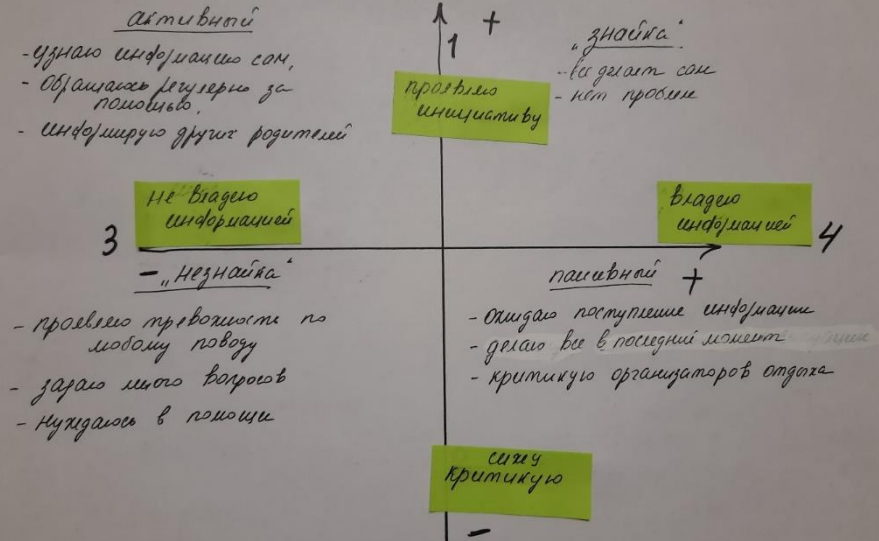 активный
- узнаю информацию сам,
- Обращаюсь регулярно за
помощью,
- информирую других родителей
+
1
проявляю
инициативу
„знайка“
- все делает сам
- нет проблем
не владею
информацией
3
владею
информацией
4
- „незнайка“
- проявляю тревожность по
любому поводу
- задаю много вопросов
- нуждаюсь в помощи
пасивный
+
- Ожидаю поступление информации
- делаю все в последний момент
- критикую организаторов отдыха
сижу
критикую
-